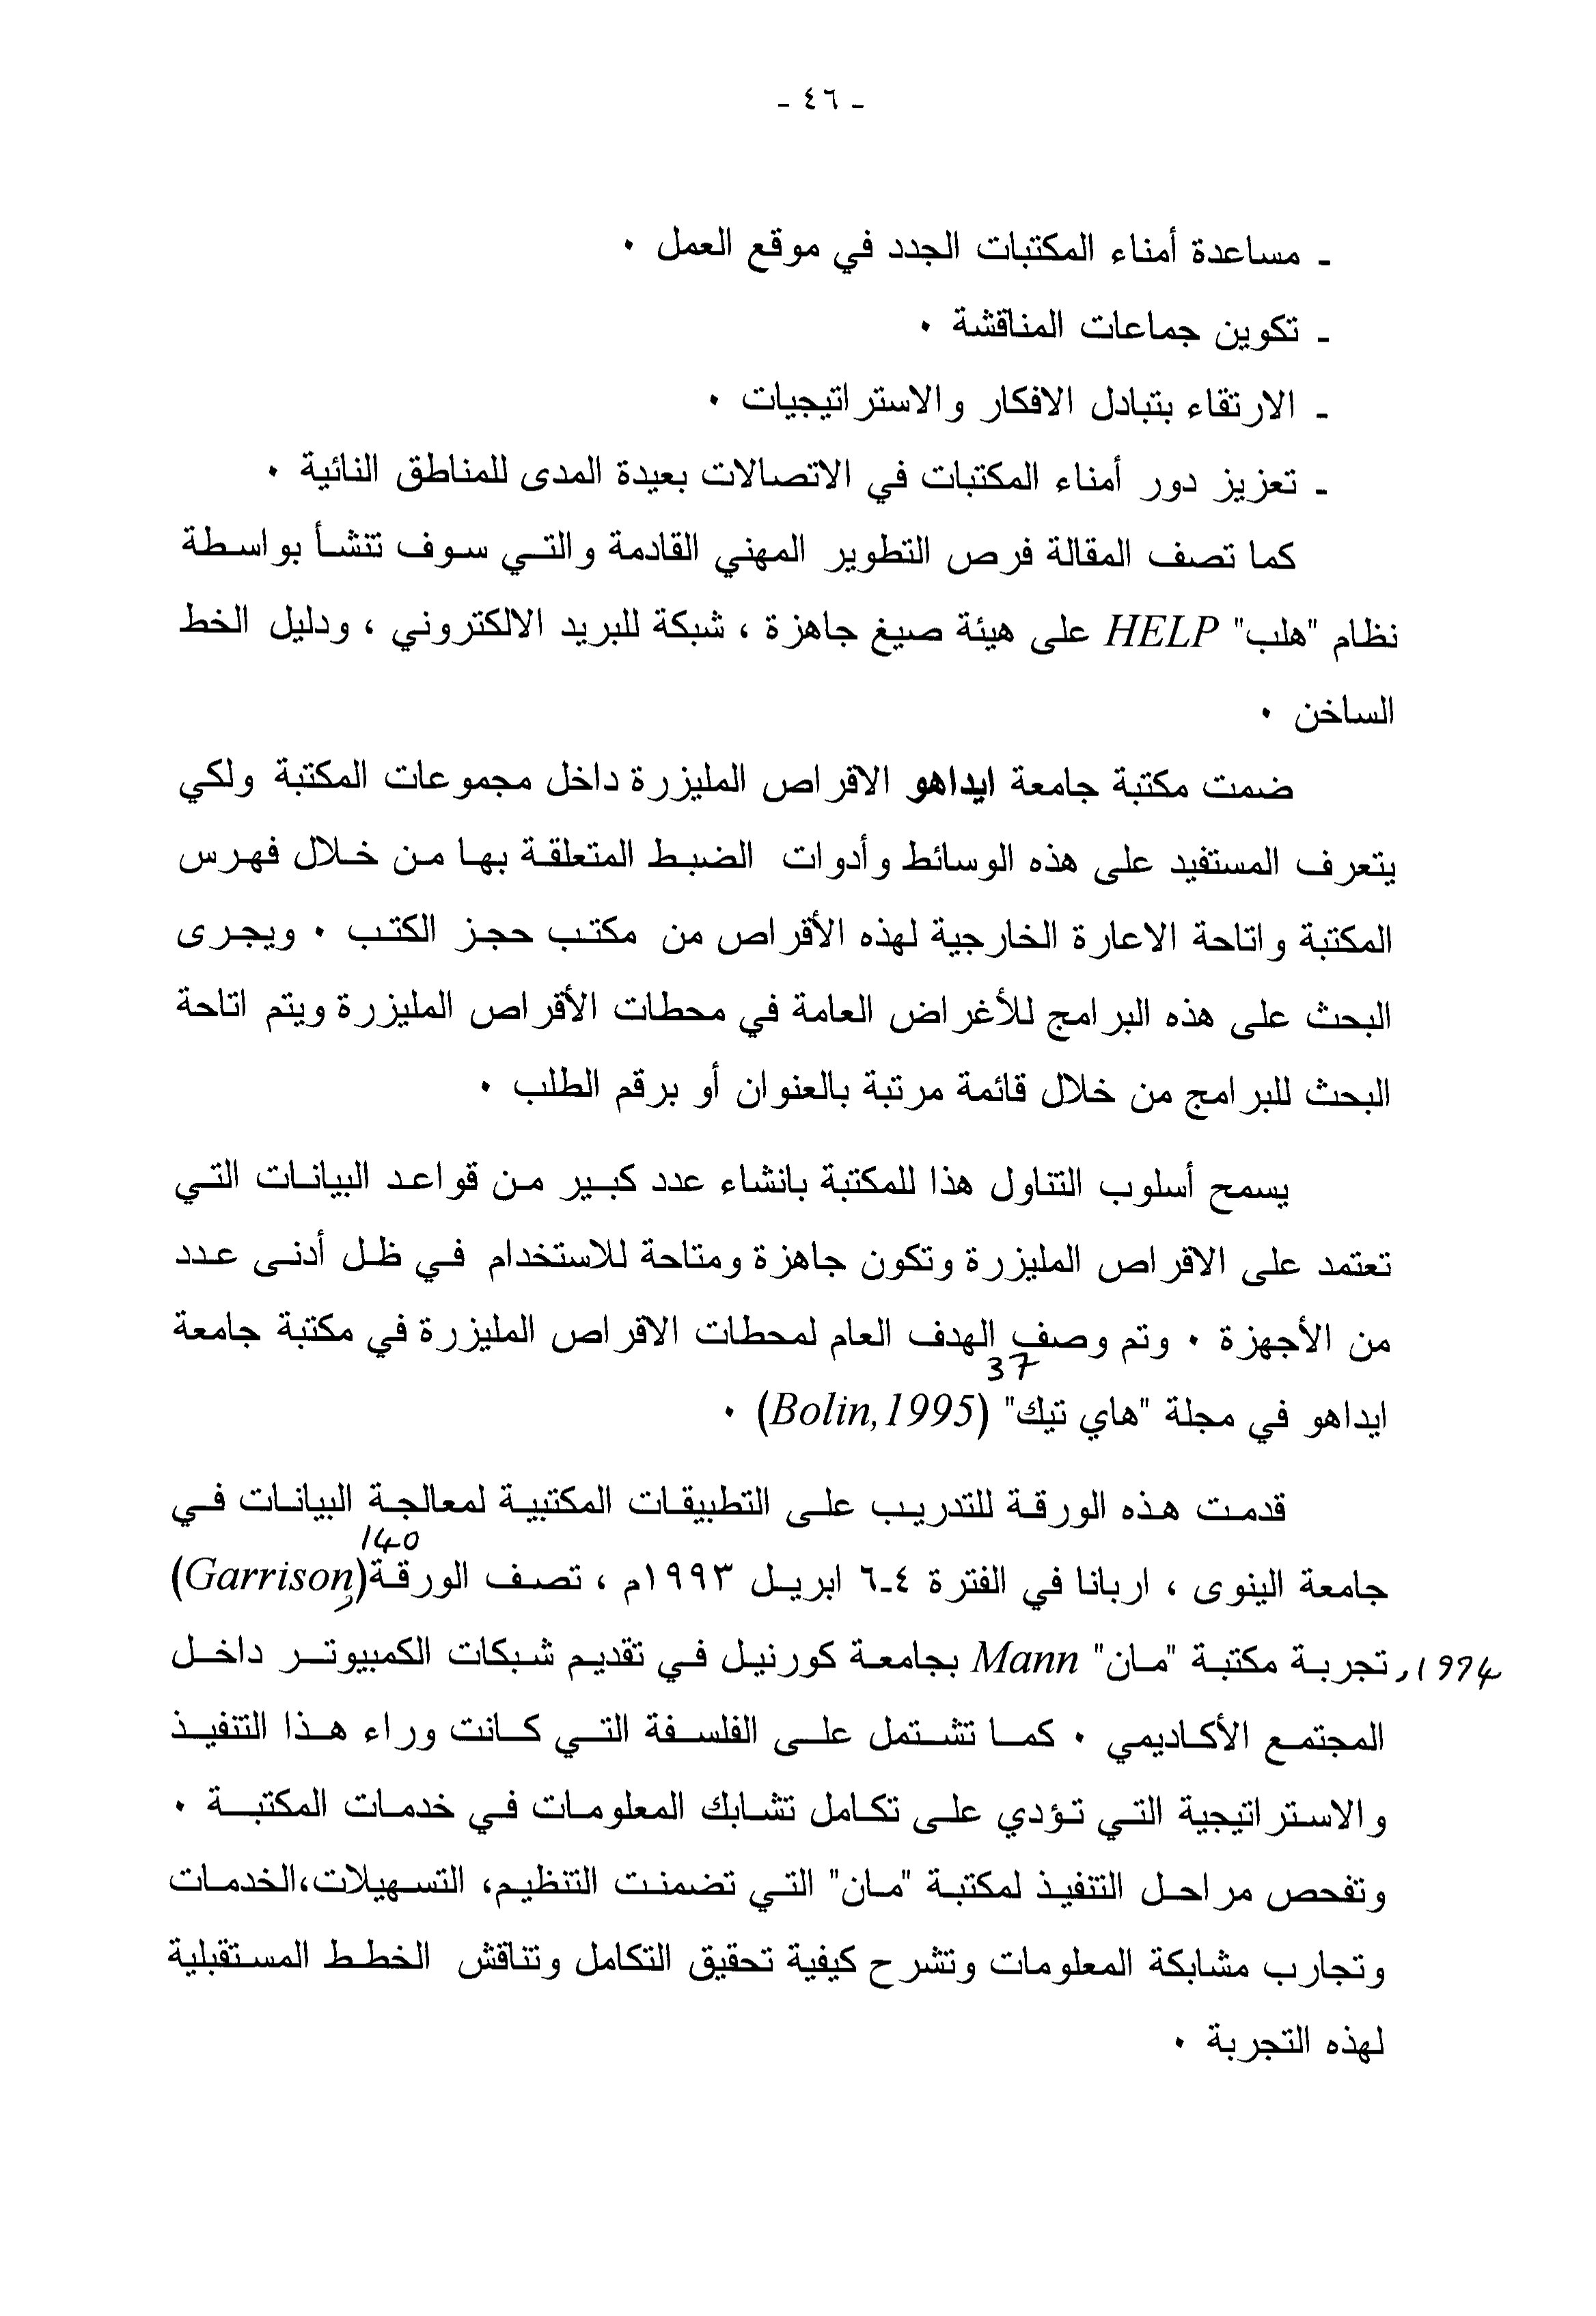 - ٤٦ -
- مساعدة أمناء المكتبات الجدد في موقع العمل ٠
- تكوين جماعات المناقشة ٠
- الارتقاء بتبادل الافكار والاستراتيجيات ٠
- تعزيز دور أمناء المكتبات في الاتصالات بعيدة المدى للمناطق النائية ٠
كما تصف المقالة فرص التطوير المهني القادمة والتي سوف تنشأ بواسطة
نظام "هلب" HELP على هيئة صيغ جاهزة ، شبكة للبريد الالكتروني ، ودليل الخط
الساخن ٠
ضمت مكتبة جامعة ايداهو الاقراص المليزرة داخل مجموعات المكتبة ولكي
يتعرف المستفيد على هذه الوسائط وأدوات الضبط المتعلقة بها من خلال فهرس
المكتبة واتاحة الاعارة الخارجية لهذه الأقراص من مكتب حجز الكتب ٠ ويجرى
البحث على هذه البرامج للأغراض العامة في محطات الأقراص المليزرة ويتم اتاحة
البحث للبرامج من خلال قائمة مرتبة بالعنوان أو برقم الطلب ٠
يسمح أسلوب التناول هذا للمكتبة بانشاء عدد كبير من قواعد البيانات التي
تعتمد على الاقراص المليزرة وتكون جاهزة ومتاحة للاستخدام في ظل أدنى عدد
من الأجهزة ٠ وتم وصف الهدف العام لمحطات الاقراص المليزرة في مكتبة جامعة
37
ايداهو في مجلة "هاي تيك" (Bolin,1995) ٠
قدمت هذه الورقة للتدريب على التطبيقات المكتبية لمعالجة البيانات في
140
جامعة الينوى ، اربانا في الفترة ٤-٦ ابريل ١٩٩٣م ، تصف الورقة(Garrison,)
1994, تجربة مكتبة "مان" Mann بجامعة كورنيل في تقديم شبكات الكمبيوتر داخل
المجتمع الأكاديمي ٠ كما تشتمل على الفلسفة التي كانت وراء هذا التنفيذ
والاستراتيجية التي تؤدي على تكامل تشابك المعلومات في خدمات المكتبة ٠
وتفحص مراحل التنفيذ لمكتبة "مان" التي تضمنت التنظيم، التسهيلات،الخدمات
وتجارب مشابكة المعلومات وتشرح كيفية تحقيق التكامل وتناقش الخطط المستقبلية
لهذه التجربة ٠